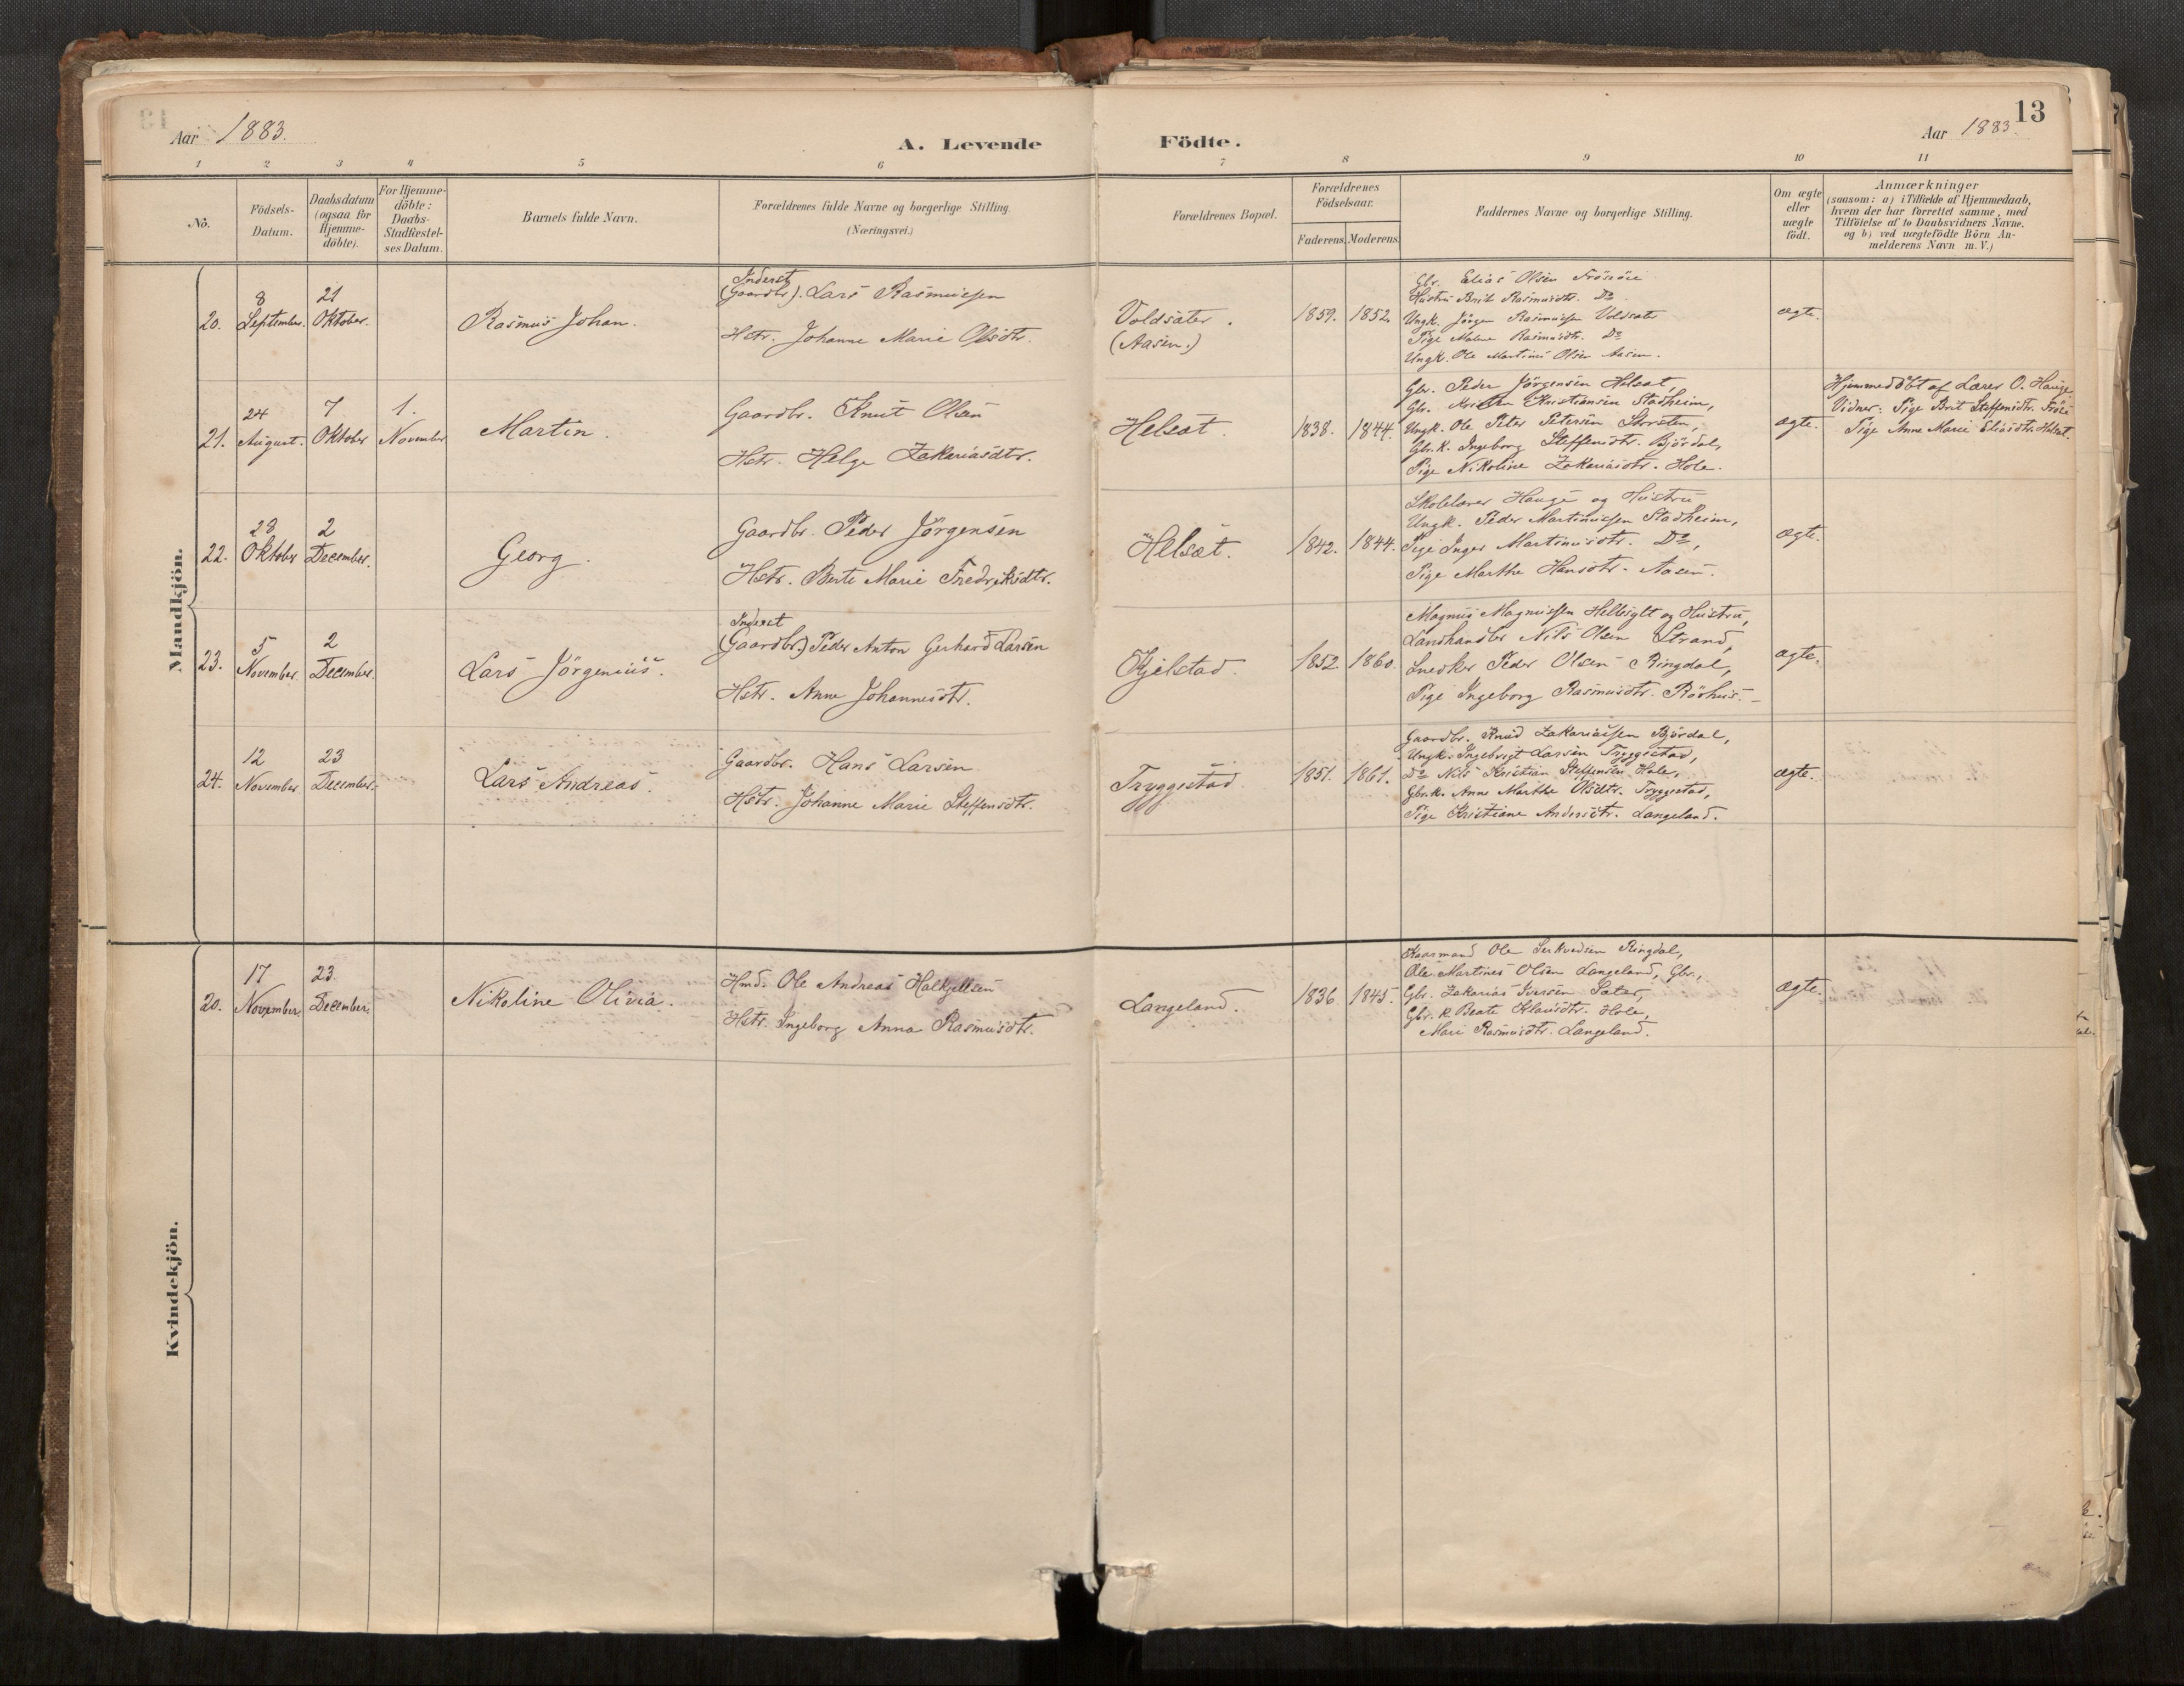 13
Aar 1883.
A. Levende Födte.
Aar 1883.
1 2 3 4 5 6 7 8 9 10 11
No.
Födsels-
Datum.
Daabsdatum
(ogsaa for
Hjemme-
döbte).
For Hjemme-
döbte:
Daabs-
Stadfestel-
ses Datum.
Barnets fulde Navn.
Forældrenes fulde Navne og borgerlige Stilling.
(Næringsvei.)
Forældrenes Bopæl.
Forældrenes
Födselsaar.
Faderens. Moderens.
Faddernes Navne og borgerlige Stilling.
Om ægte
eller
uægte
födt.
Anmærkninger
(saasom: a) i Tilfælde af Hjemmedaab,
hvem der har forrettet samme, med
Tilföielse af to Daabsvidners Navne,
og b) ved uægtefödte Börn An-
melderens Navn m. V.)
Mandkjön.
20.
8
September.
21
Oktober.
Rasmus Johan.
Inderst
(Gaardbr). Lars Rasmussen
Hstr. Johanne Marie Olsdtr.
Voldsæter.
(Aasen.)
1859. 1852.
Gbr. Elias Olsen Frösöie
Hustru Brit Rasmusdtr. Do.
Ungk. Jörgen Rasmussen Voldsæter
Pige Malene Rasmusdtr. Do
Ungk. Ole Martinus Olsen Aasen.
ægte.
21.
24
August.
7
Oktober
1.
November
Martin.
Gaardbr. Knut Olsen
Hstr. Helge Zakariasdtr.
Helsæt.
1838. 1844.
Gbr. Peder Jörgensen Helsæt,
Gbr. Kristen Kristiansen Stadheim,
Ungk. Ole Peter Petersen Storsten,
Gbr.k. Ingeborg Steffensdtr. Björdal,
Pige Nikoline Zakariasdtr. Hole.
ægte.
Hjemmedöbt af Lærer O. Hauge
Vidner: Pige Brit Steffensdtr. Frösö
Pige Anne Marie Eliasdtr. Helsæt.
22.
28
Oktober
2
December.
Georg.
Gaardbr. Peder Jörgensen
Hstr. Berte Marie Fredriksdtr.
Helsæt.
1842. 1844.
Skolelærer Hauge og Hustru
Ungk. Peder Martinussen Stadheim,
Pige Inger Martinusdtr. Do,
Pige Marthe Hansdtr. Aasen.
ægte.
23.
5
November.
2
December.
Lars Jörgenius.
Inderst
(Gaardbr.) Peder Anton Gerhard Larsen
Hstr. Anne Johannesdtr.
Kjelstad.
1852. 1860.
Magnus Magnussen Hellesylt og Hustru,
Landhandler Nils Olsen Strand,
Snedker Peder Olsen Ringdal,
Pige Ingeborg Rasmusdtr. Rörhus.
ægte.
24.
12
November
23
December.
Lars Andreas.
Gaardbr. Hans Larsen
Hstr. Johanne Marie Steffensdtr.
Tryggestad
1851. 1861.
Gaardbr. Knud Zakariassen Björdal,
Ungk. Ingebrigt Larsen Tryggestad,
Do Nils Kristian Steffensen Hole,
Gbr.k. Anne Marthe Olsdtr. Tryggestad,
Pige Kristiane Andersdtr. Langeland.
ægte.
Kvindekjön.
20.
17
November.
23.
December.
Nikoline Olivia.
Hmd. Ole Andreas Halkjellsen
Hstr. Ingeborg Anna Rasmusdtr.
Langeland.
1836. 1845.
Kaarmand Ole Serkvedsen Ringdal,
Ole Martines Olsen Langeland, Gbr.,
Gbr. Zakarias Iversen Sæter,
Gbr. k. Beate Klausdtr. Hole,
Mari Rasmusdtr. Langeland.
ægte.